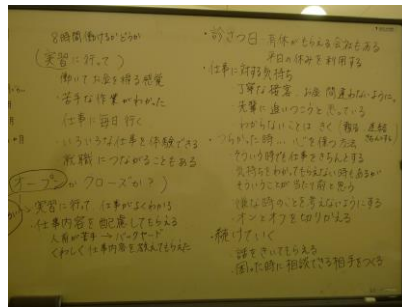 8時間働けるかどうか
(実習に行って)
働いてお金を得る感覚
・苦手な作業がわかった
仕事に毎日行く
・いろいろな仕事を体験できる
就職につながることもある
(オープンかクローズか?)
・実習に行って 仕事がよくわかる
・仕事内容を配慮してもらえる
人前が苦手→バックヤード
くわしく仕事内容を教えてもらえた
・給さつ日 有休がもらえる会社もある
平日の休みを利用する
・仕事に対する気持ち
丁寧な接客、お金間違わないように。
先輩に追いつこうと思っている
わからないことは きく
・つらかった時… 心を保つ方法
そういう時でも仕事できちんとする
気持ちをわかってもらえない時もあるが
そういうことが当たり前と思う
・嫌な時のことを考えないようにする
・オンとオフを切りかえる
・続けていく
話をきいてもらえる
困った時に相談できる相手をつくる